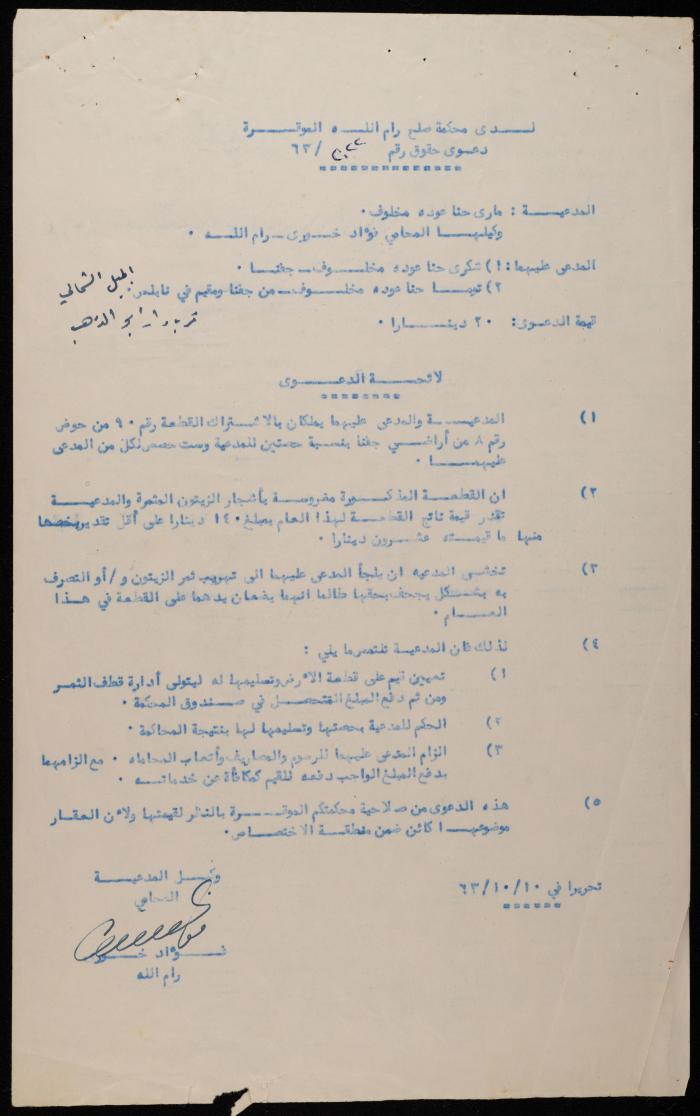 لـــدى محكمة صلح رام اللـــه الموقـــرة
دعوى حقوق رقم /٦٣
المدعيــة : مارى حنا عوده مخلوف ٠
وكيلهــا المحامي فؤاد خــورى ــ رام اللــه ٠
المدعى عليهما : ١) شكرى حنا عوده مخلــوف ــ جفنــا ٠
٢) تومــا حنا عوده مخلــوف ــ من جفنا ومقيم في نابلس ٠
الجبل الشمالي
قرب دار الذهب
قيمة الدعوى : ٢٠ دينـــارا ٠
لائحــة الدعــوى
١) المدعيــة والمدعى عليهما يملكان بالاشتراك القطعة رقم ٩٠ من حوض
رقم ٨ من أراضــي جفنا بنسبة حصتين للمدعية وست حصص لكل من المدعى
عليهمــا ٠
٢) ان القطعــة المذكــورة مغروسة بأشجار الزيتون المثمرة والمدعيــة
تقدر قيمة ناتج القطعــة لهذا العام بمبلغ ١٤٠ دينارا على أقل تقدير يخصها
منها ما قيمتــه عشــرون دينارا ٠
٣) تخشى المدعيه ان يلجأ المدعى عليهما الى تهريب ثمر الزيتون و/أو التصرف
به بشــكل يجحف بحقها طالما انهما يضعان يدهما على القطعة في هــذا
العــام ٠
٤) لذلك فان المدعيــة تلتمس ما يلي :
١) تعيين قيم على قطعة الارض وتسليمها له ليتولى أدارة قطف الثمر
ومن ثم دفع المبلغ المتحصــل في صــندوق المحكمة ٠
٢) الحكم للمدعية بحصتها وتسليمها لها بنتيجة المحاكمة ٠
٣) الزام المدعى عليهما للرسوم والمصاريف وأتعاب المحاماه ٠ مع الزامهما
بدفع المبلغ الواجب دفعه للقيم كمكافأة عن خدماتــه ٠
٥) هذه الدعوى من صلاحية محكمتكم الموقــرة بالنظر لقيمتها ولان العقار
موضوعهــا كائن ضمن منطقــة الاختصاص ٠
تحريرا في ٦٣/١٠/١٠
وكيــل المدعيــة
المحامي
فــؤاد خــورى
رام الله